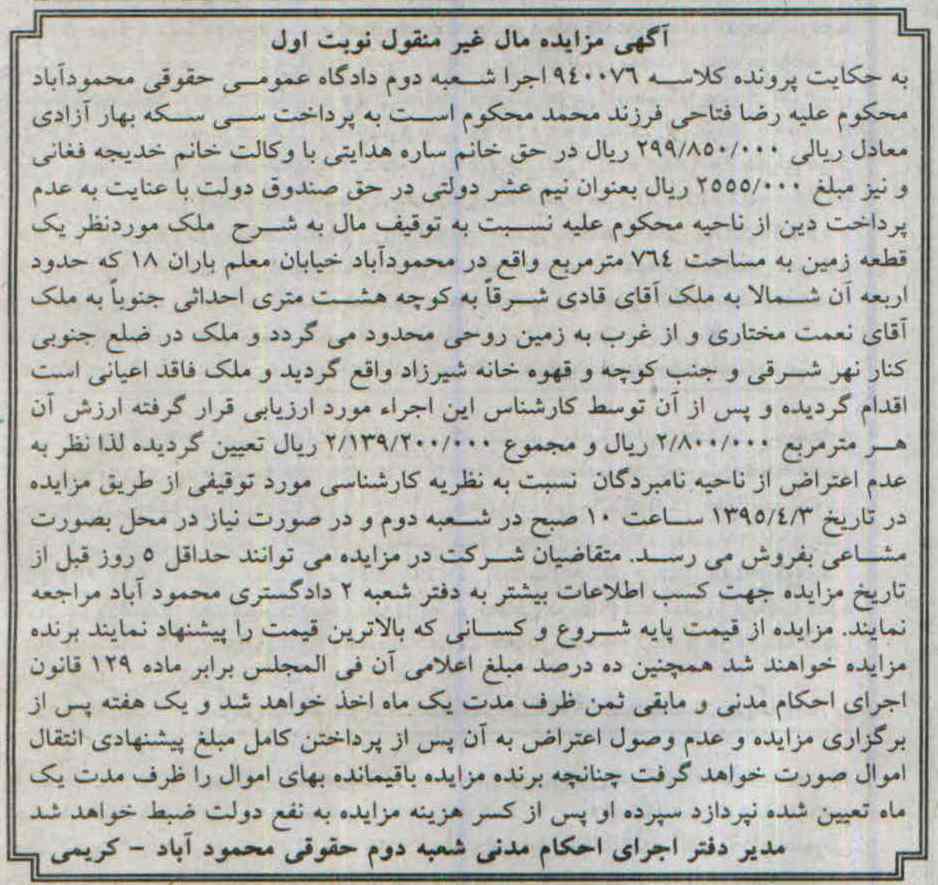 آگهی مزایده مال غیر منقول نوبت اول
به حکایت پرونده کلاسه ۹۴۰۰۷۶ اجرا شعبه دوم دادگاه عمومی حقوقی محمودآباد
محکوم علیه رضا فتاحی فرزند محمد محکوم است به پرداخت سی سکه بهار آزادی
معادل ریالی ۲۹۹/۸۵۰/۰۰۰ ریال در حق خانم ساره هدایتی با وکالت خانم خدیجه فغانی
و نیز مبلغ ۲۵۵۵/۰۰۰ ریال بعنوان نیم عشر دولتی در حق صندوق دولت با عنایت به عدم
پرداخت دین از ناحیه محکوم علیه نسبت به توقیف مال به شرح ملک موردنظر یک
قطعه زمین به مساحت ۷۶۴ مترمربع واقع در محمودآباد خیابان معلم باران ۱۸ که حدود
اربعه آن شمالا به ملک آقای قادی شرقاً به کوچه هشت متری احداثی جنوباً به ملک
آقای نعمت مختاری و از غرب به زمین روحی محدود می گردد و ملک در ضلع جنوبی
کنار نهر شرقی و جنب کوچه و قهوه خانه شیرزاد واقع گردید و ملک فاقد اعیانی است
اقدام گردیده و پس از آن توسط کارشناس این اجراء مورد ارزیابی قرار گرفته ارزش آن
هر مترمربع ۲/۸۰۰/۰۰۰ ریال و مجموع ۲/۱۳۹/۲۰۰/۰۰۰ ریال تعیین گردیده لذا نظر به
عدم اعتراض از ناحیه نامبردگان نسبت به نظریه کارشناسی مورد توقیفی از طریق مزایده
در تاریخ ۱۳۹۵/۴/۳ ساعت ۱۰ صبح در شعبه دوم و در صورت نیاز در محل بصورت
مشاعی بفروش می رسد. متقاضیان شرکت در مزایده می توانند حداقل ۵ روز قبل از
تاریخ مزایده جهت کسب اطلاعات بیشتر به دفتر شعبه ۲ دادگستری محمود آباد مراجعه
نمایند. مزایده از قیمت پایه شروع و کسانی که بالاترین قیمت را پیشنهاد نمایند برنده
مزایده خواهند شد همچنین ده درصد مبلغ اعلامی آن فی المجلس برابر ماده ۱۲۹ قانون
اجرای احکام مدنی و مابقی ثمن ظرف مدت یک ماه اخذ خواهد شد و یک هفته پس از
برگزاری مزایده و عدم وصول اعتراض به آن پس از پرداختن کامل مبلغ پیشنهادی انتقال
اموال صورت خواهد گرفت چنانچه برنده مزایده باقیمانده بهای اموال را ظرف مدت یک
ماه تعیین شده نپردازد سپرده او پس از کسر هزینه مزایده به نفع دولت ضبط خواهد شد
مدیر دفتر اجرای احکام مدنی شعبه دوم حقوقی محمود آباد - کریمی